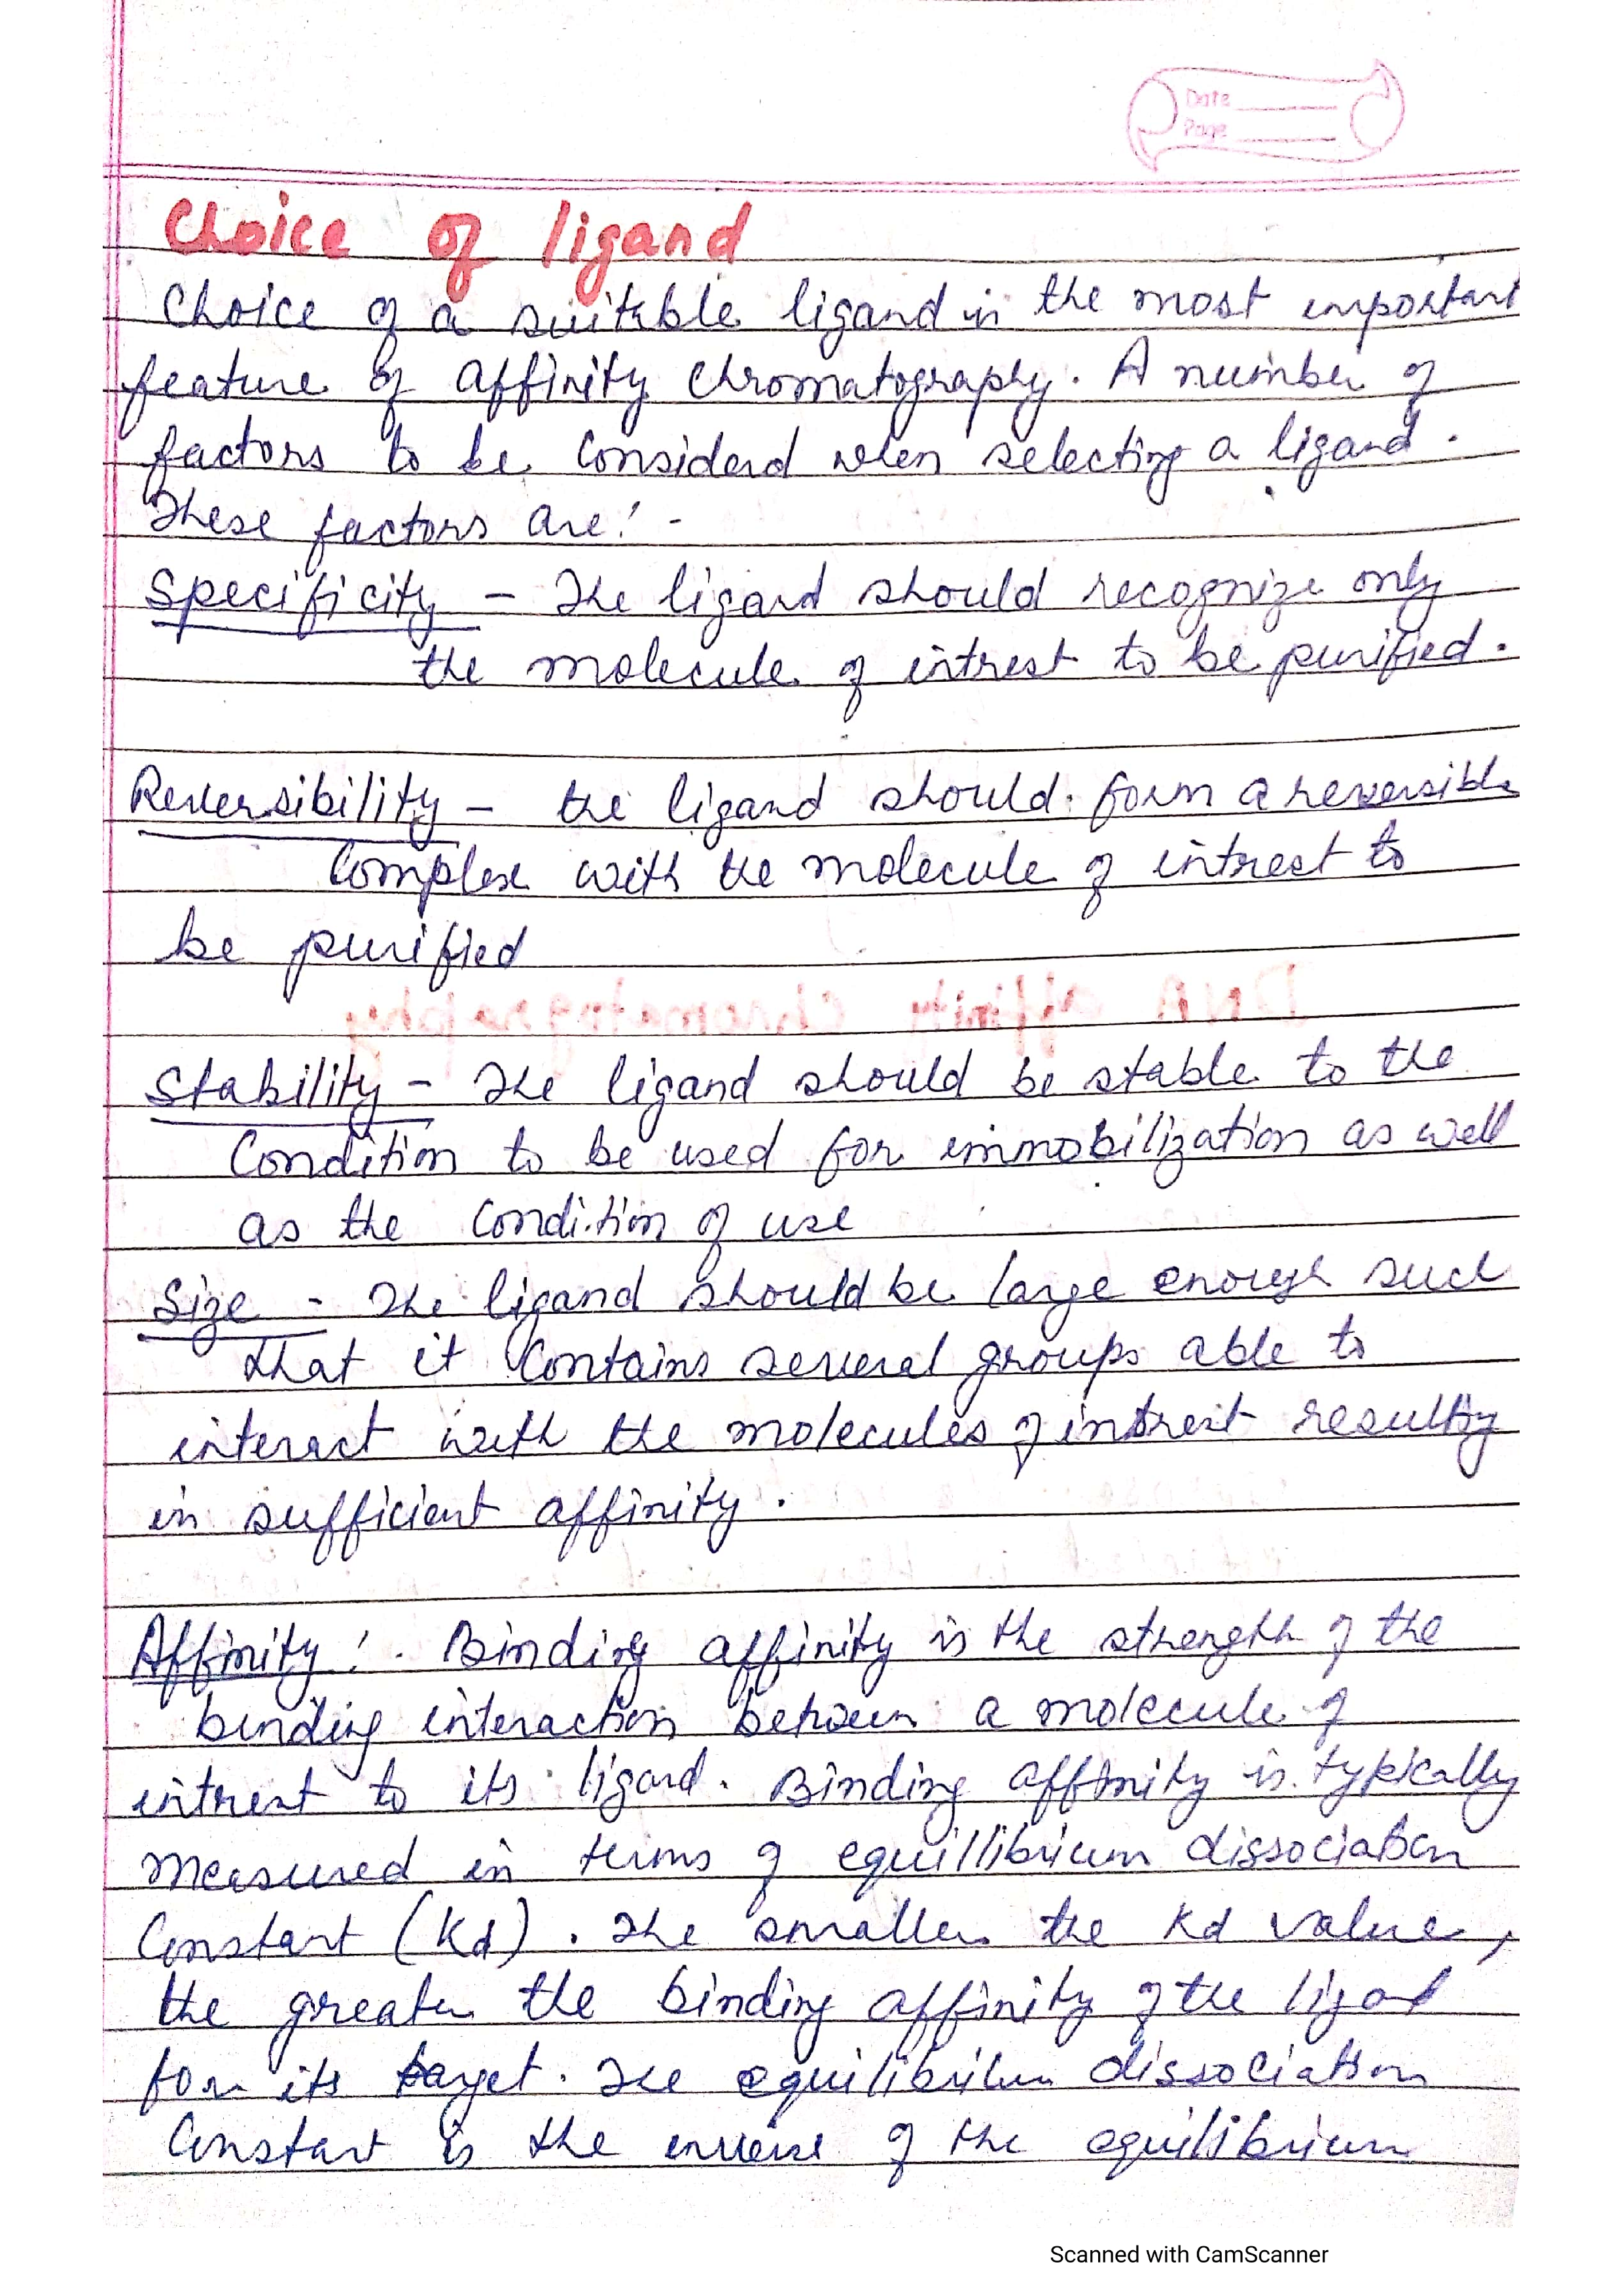 Date
Page
Choice of ligand
Choice of a suitable ligand is the most important
feature of affinity chromatography. A number of
factors to be considerd when selecting a ligand.
These factors are: -
Specificity - The ligand should recognize only
the molecule of intrest to be purified.
Reversibility - the ligand should form a reversible
Complex with the molecule of intrest to
be purified
DNA affinity chromatography
Stability - The ligand should be stable to the
Condition to be used for immobilization as well
as the Condition of use
Size - The ligand should be large enough such
that it Contains several groups able to
interact with the molecules of intrest resulting
in sufficient affinity.
Affinity :- Binding affinity is the strength of the
binding interaction between a molecule of
intrest to its ligand. Binding affinity is typically
measured in terms of equillibrium dissociation
Constant (Kd). The smaller the Kd value,
the greater the binding affinity of the ligand
for its target. The equilibrium dissociation
Constant is the inverse of the equilibrium
Scanned with CamScanner